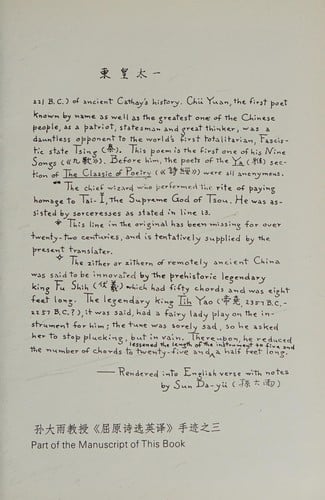 東皇太一
221 B.C.) of ancient Cathay's history. Chü Yuan, the first poet
known by name as well as the greatest one of the Chinese
people, as a patriot, statesman and great thinker, was a
dauntless opponent to the world's first totalitarian, Fascis-
tic state Tsing (秦). This poem is the first one of his Nine
Songs (《九歌》). Before him, the poets of the Ya (雅) sec-
tion of The Classic of Poetry (《詩經》) were all anonymous.
The chief wizard who performed the rite of paying
homage to Tai-I, the Supreme God of Tsou. He was as-
sisted by sorceresses as stated in line 13.
* This line in the original has been missing for over
twenty-two centuries, and is tentatively supplied by the
present translater.
* The zither or zithern of remotely ancient China
was said to be innovated by the prehistoric legendary
king Fu Shih (伏羲) which had fifty chords and was eight
feet long. The legendary king Tih Yao (帝堯, 2357 B.C.-
2258 B.C.?), it was said, had a fairy lady play on the in-
strument for him; the tune was sorely sad, so he asked
her to stop plucking, but in vain. Thereupon, he reduced
lessened the length of the instrument to five and
the number of chords to twenty-five and a half feet long.
—— Rendered into English verse with notes
by Sun Da-yü (孫大雨)
孙大雨教授《屈原诗选英译》手迹之三
Part of the Manuscript of This Book